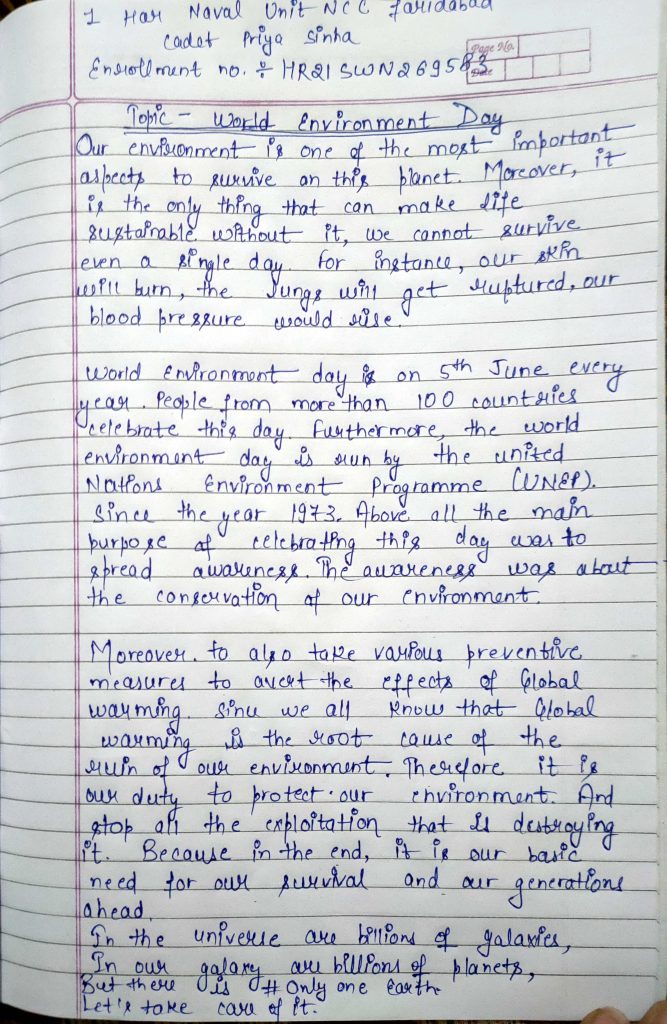 1 Har Naval Unit NCC faridabad
Cadet Priya Sinha
Page No.
Enrollment no. ÷ HR21SWN269583
Date
Topic - World Environment Day
Our environment is one of the most important
aspects to survive on this planet. Moreover, it
is the only thing that can make life
sustainable. without it, we cannot survive
even a single day. for instance, our skin
will burn, the lungs will get ruptured, our
blood pressure would rise.
World Environment day is on 5th June every
year. People from more than 100 countries
celebrate this day. Furthermore, the world
environment day is run by the united
Nations Environment Programme (UNEP).
Since the year 1973. Above all the main
purpose of celebrating this day was to
spread awareness. The awareness was about
the conservation of our environment.
Moreover. to also take various preventive
measures to avert the effects of Global
warming. Since we all know that Global
warming is the root cause of the
ruin of our environment. Therefore it is
our duty to protect our environment. And
stop all the exploitation that is destroying
it. Because in the end, it is our basic
need for our survival and our generations
ahead.
In the universe are billions of galaxies,
In our galaxy are billions of planets,
But there is # Only one Earth
Let's take care of it.